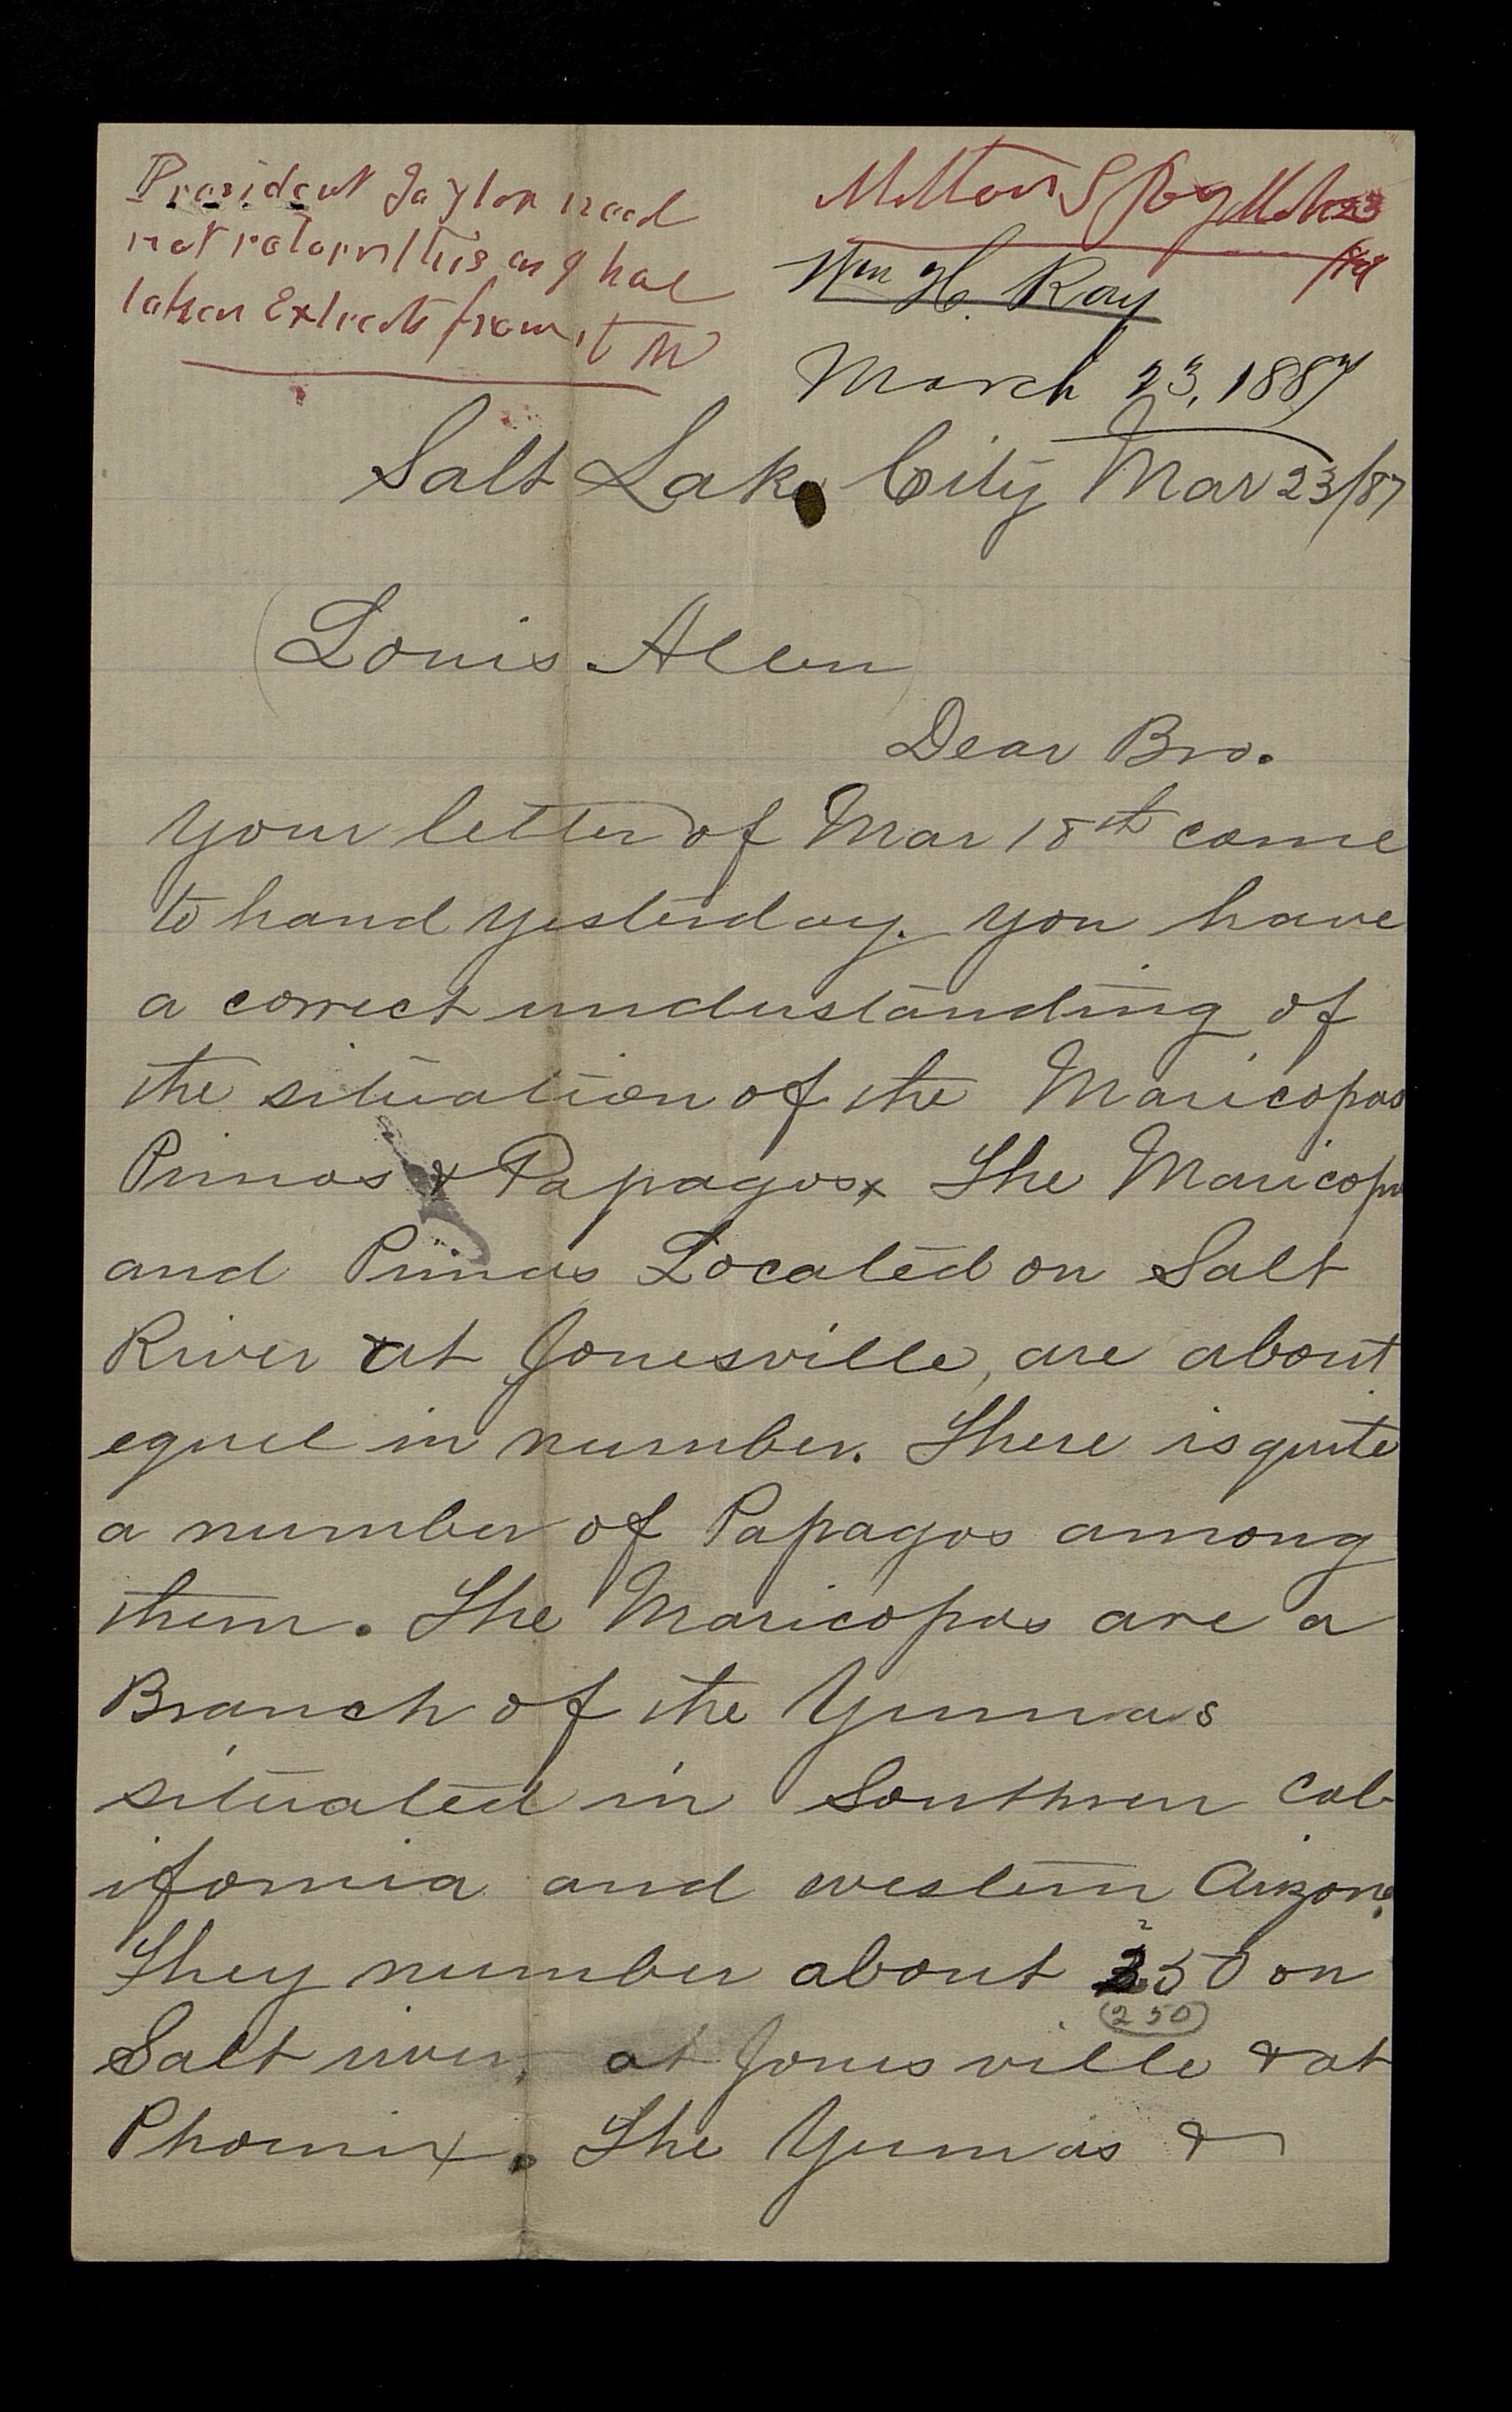 President Taylor need
not return this as I have
taken Extracts from it W
Milton S Ray Mch 23
Wm H. Ray
/87
March 23, 1887
Salt Lake City Mar 23/87
(Louis Allen)
Dear Bro.
Your letter of Mar 18th come
to hand yesterday. you have
a correct understanding of
the situation of the Maricopas
Pimas & Papagos x The Maricopas
and Pimas Located on Salt
River at Jonesville, are about
equel in number. There is quite
a number of Papagos among
them. The Maricopas are a
Branch of the Yumas
situated in Southren Cal-
ifornia and western Arizona.
They number about 250 on
(250)
Salt river, at Jonesville & at
Phoenix. The Yumas &